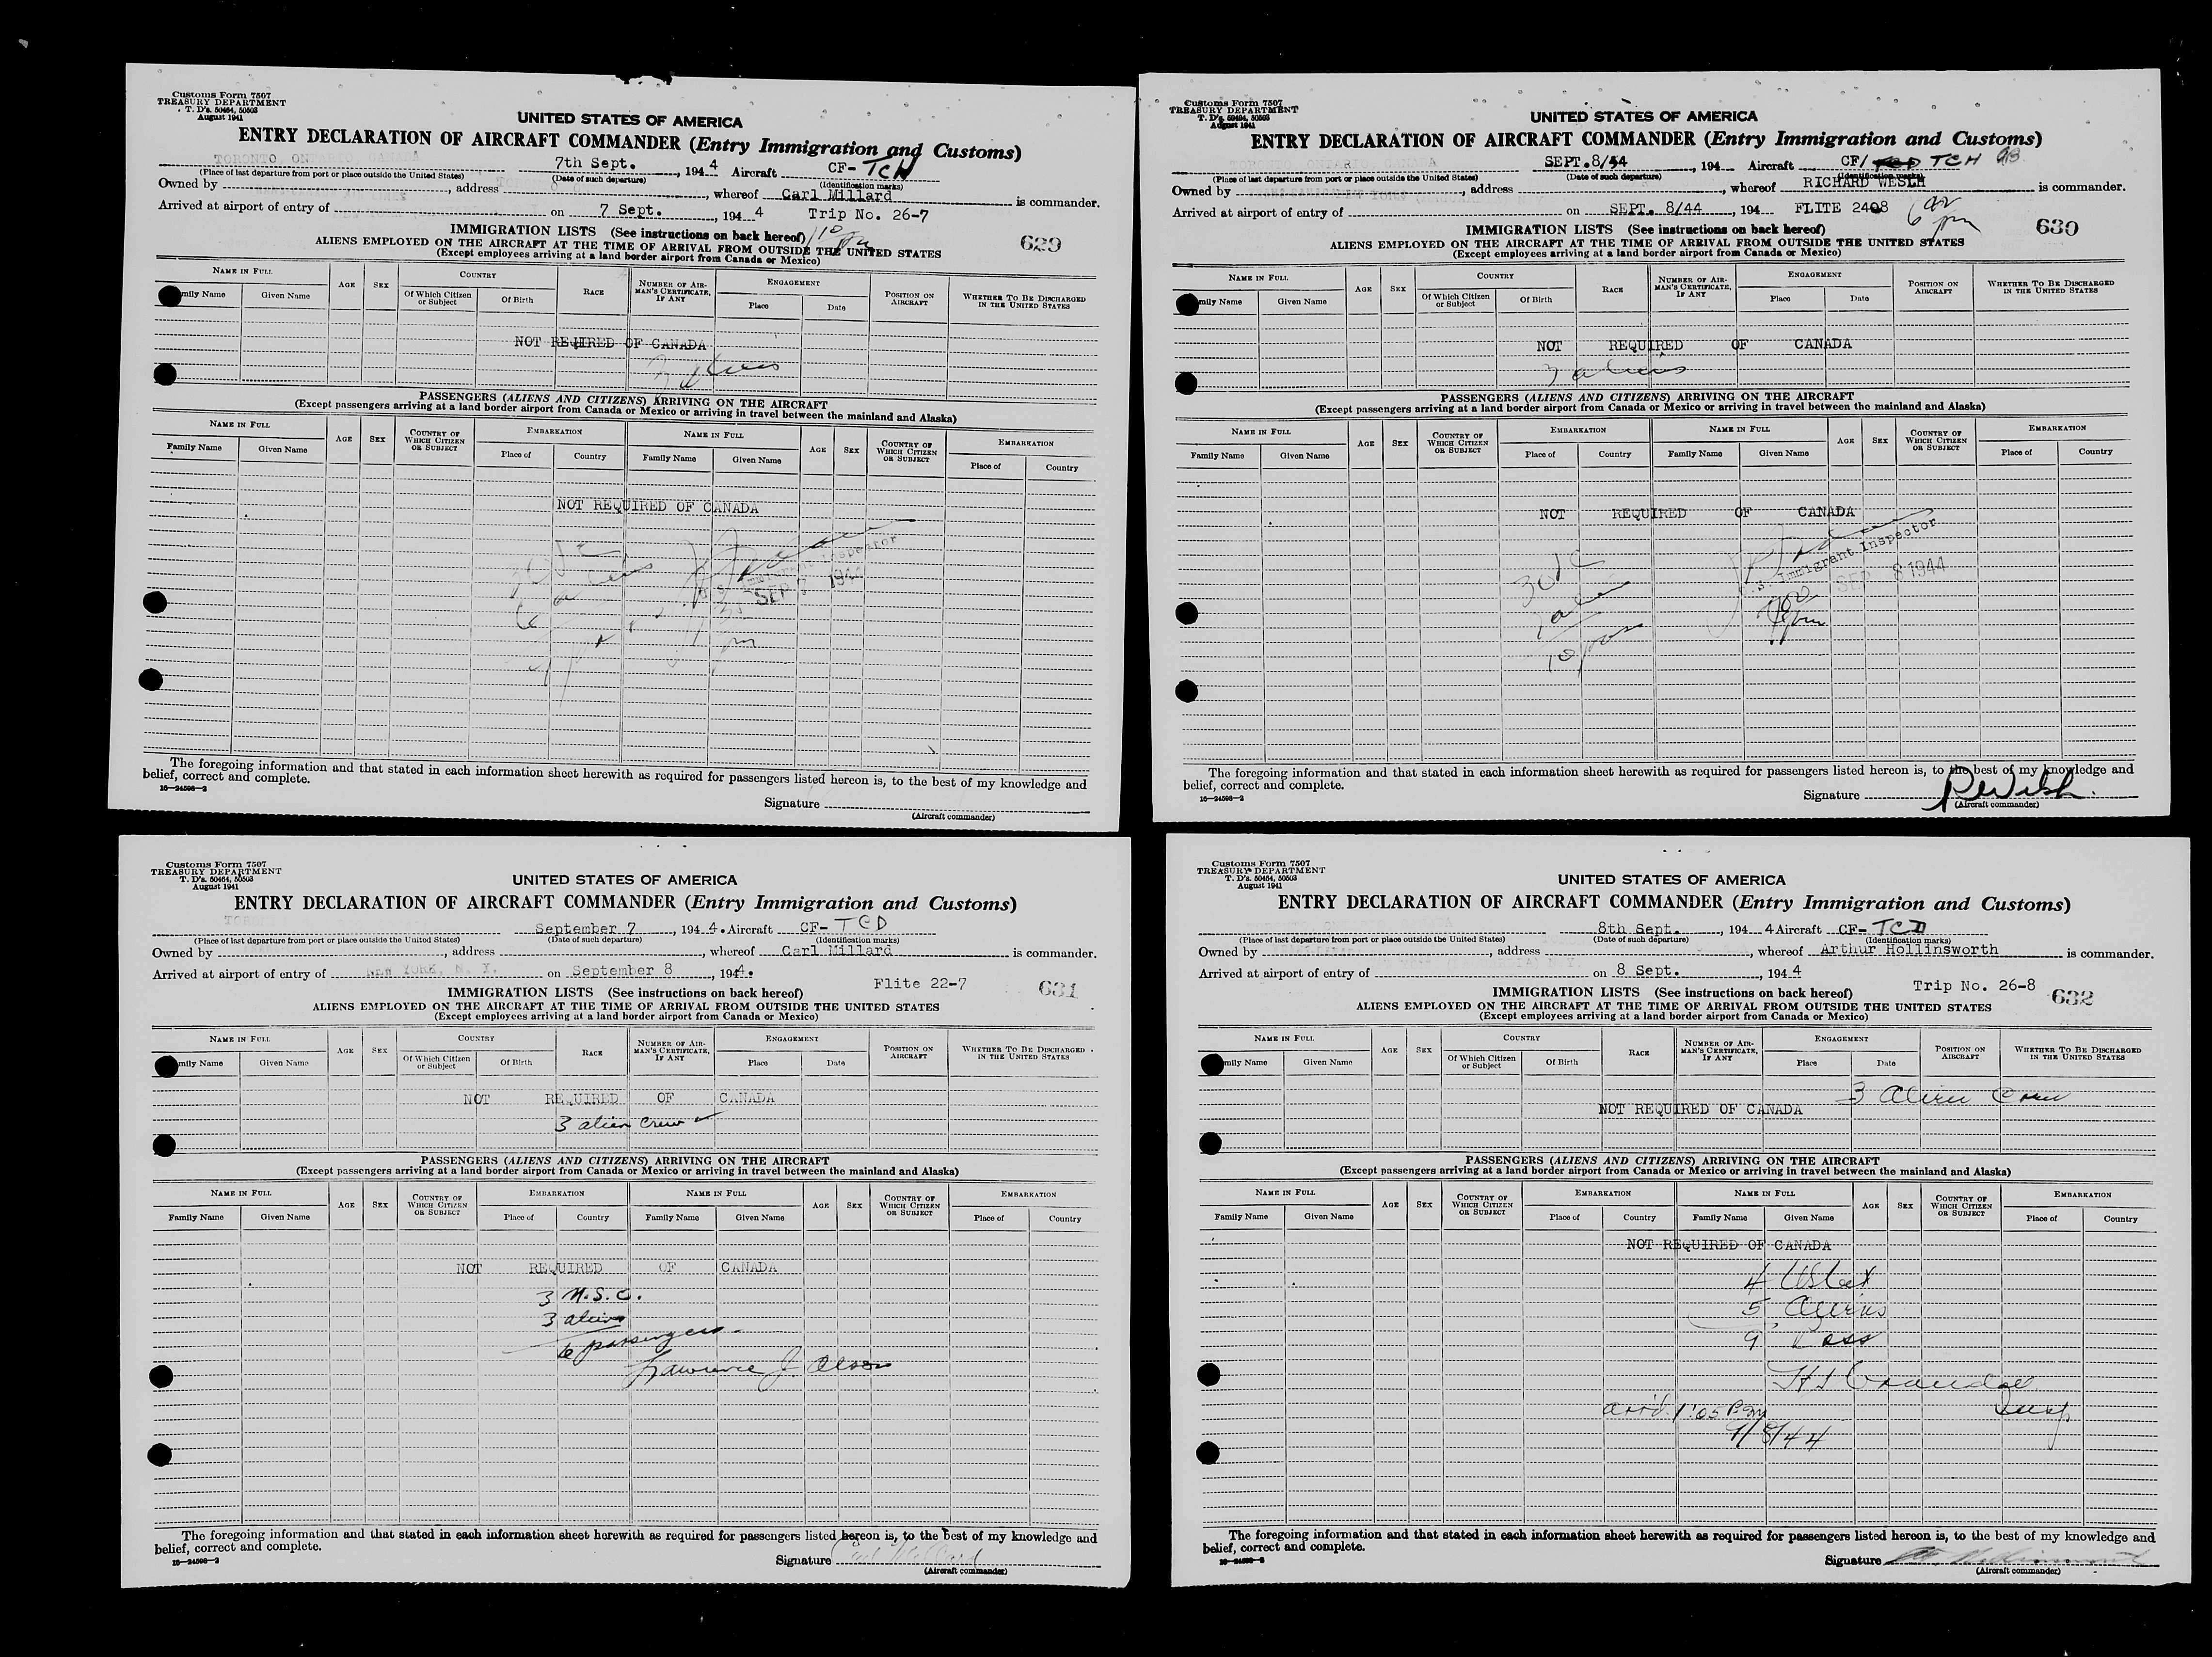 Customs Form 7507
TREASURY DEPARTMENT
T. D's. 50464, 50503
August 1941
UNITED STATES OF AMERICA
ENTRY DECLARATION OF AIRCRAFT COMMANDER (Entry Immigration and Customs)
TORONTO, ONTARIO, CANADA 7th Sept. , 194 4 Aircraft CF- TCH
(Place of last departure from port or place outside the United States) (Date of such departure) (Identification marks)
Owned by , address , whereof Carl Millard is commander.
Arrived at airport of entry of on 7 Sept. , 194 4 Trip No. 26-7
IMMIGRATION LISTS (See instructions on back hereof)
629
ALIENS EMPLOYED ON THE AIRCRAFT AT THE TIME OF ARRIVAL FROM OUTSIDE THE UNITED STATES
(Except employees arriving at a land border airport from Canada or Mexico)
NAME IN FULL AGE SEX COUNTRY RACE NUMBER OF AIR-MAN'S CERTIFICATE, IF ANY ENGAGEMENT POSITION ON AIRCRAFT WHETHER TO BE DISCHARGED IN THE UNITED STATES
mily Name Given Name Of Which Citizen or Subject Of Birth Place Date
NOT REQUIRED OF CANADA
3 aliens
PASSENGERS (ALIENS AND CITIZENS) ARRIVING ON THE AIRCRAFT
(Except passengers arriving at a land border airport from Canada or Mexico or arriving in travel between the mainland and Alaska)
NAME IN FULL AGE SEX COUNTRY OF WHICH CITIZEN OR SUBJECT EMBARKATION NAME IN FULL AGE SEX COUNTRY OF WHICH CITIZEN OR SUBJECT EMBARKATION
Family Name Given Name Place of Country Family Name Given Name Place of Country
NOT REQUIRED OF CANADA
Immigrant Inspector
SEP 7 1944
pm
The foregoing information and that stated in each information sheet herewith as required for passengers listed hereon is, to the best of my knowledge and
belief, correct and complete.
16—24598-2
Signature
(Aircraft commander)
Customs Form 7507
TREASURY DEPARTMENT
T. D's. 50464, 50503
August 1941
UNITED STATES OF AMERICA
ENTRY DECLARATION OF AIRCRAFT COMMANDER (Entry Immigration and Customs)
SEPT.8/44 , 194 Aircraft CF/ TCD TCH
(Place of last departure from port or place outside the United States) (Date of such departure) (Identification marks)
Owned by , address , whereof RICHARD WESLH is commander.
Arrived at airport of entry of on SEPT. 8/44 , 194 FLITE 2408
pm
IMMIGRATION LISTS (See instructions on back hereof)
630
ALIENS EMPLOYED ON THE AIRCRAFT AT THE TIME OF ARRIVAL FROM OUTSIDE THE UNITED STATES
(Except employees arriving at a land border airport from Canada or Mexico)
NAME IN FULL AGE SEX COUNTRY RACE NUMBER OF AIR-MAN'S CERTIFICATE, IF ANY ENGAGEMENT POSITION ON AIRCRAFT WHETHER TO BE DISCHARGED IN THE UNITED STATES
mily Name Given Name Of Which Citizen or Subject Of Birth Place Date
NOT REQUIRED OF CANADA
3 aliens
PASSENGERS (ALIENS AND CITIZENS) ARRIVING ON THE AIRCRAFT
(Except passengers arriving at a land border airport from Canada or Mexico or arriving in travel between the mainland and Alaska)
NAME IN FULL AGE SEX COUNTRY OF WHICH CITIZEN OR SUBJECT EMBARKATION NAME IN FULL AGE SEX COUNTRY OF WHICH CITIZEN OR SUBJECT EMBARKATION
Family Name Given Name Place of Country Family Name Given Name Place of Country
NOT REQUIRED OF CANADA
Immigrant Inspector
SEP 8 1944
pm
10 pass
The foregoing information and that stated in each information sheet herewith as required for passengers listed hereon is, to the best of my knowledge and
belief, correct and complete.
16—24598-2
Signature
(Aircraft commander)
Customs Form 7507
TREASURY DEPARTMENT
T. D's. 50464, 50503
August 1941
UNITED STATES OF AMERICA
ENTRY DECLARATION OF AIRCRAFT COMMANDER (Entry Immigration and Customs)
September 7 , 194 4. Aircraft CF- TCD
(Place of last departure from port or place outside the United States) (Date of such departure) (Identification marks)
Owned by , address , whereof Carl Millard is commander.
Arrived at airport of entry of NEW YORK, N. Y. on September 8 , 1944.
Flite 22-7
IMMIGRATION LISTS (See instructions on back hereof)
631
ALIENS EMPLOYED ON THE AIRCRAFT AT THE TIME OF ARRIVAL FROM OUTSIDE THE UNITED STATES
(Except employees arriving at a land border airport from Canada or Mexico)
NAME IN FULL AGE SEX COUNTRY RACE NUMBER OF AIR-MAN'S CERTIFICATE, IF ANY ENGAGEMENT POSITION ON AIRCRAFT WHETHER TO BE DISCHARGED IN THE UNITED STATES
mily Name Given Name Of Which Citizen or Subject Of Birth Place Date
NOT REQUIRED OF CANADA
3 alien crew ✓
PASSENGERS (ALIENS AND CITIZENS) ARRIVING ON THE AIRCRAFT
(Except passengers arriving at a land border airport from Canada or Mexico or arriving in travel between the mainland and Alaska)
NAME IN FULL AGE SEX COUNTRY OF WHICH CITIZEN OR SUBJECT EMBARKATION NAME IN FULL AGE SEX COUNTRY OF WHICH CITIZEN OR SUBJECT EMBARKATION
Family Name Given Name Place of Country Family Name Given Name Place of Country
NOT REQUIRED OF CANADA
3 U.S.C.
3 aliens
6 passengers
Lawrence J. Olson
The foregoing information and that stated in each information sheet herewith as required for passengers listed hereon is, to the best of my knowledge and
belief, correct and complete.
16—24598-2
Signature Carl Millard
(Aircraft commander)
Customs Form 7507
TREASURY DEPARTMENT
T. D's. 50464, 50503
August 1941
UNITED STATES OF AMERICA
ENTRY DECLARATION OF AIRCRAFT COMMANDER (Entry Immigration and Customs)
8th Sept. , 194 4 Aircraft CF- TCD
(Place of last departure from port or place outside the United States) (Date of such departure) (Identification marks)
Owned by , address , whereof Arthur Hollinsworth is commander.
Arrived at airport of entry of on 8 Sept. , 194 4
Trip No. 26-8
IMMIGRATION LISTS (See instructions on back hereof)
632
ALIENS EMPLOYED ON THE AIRCRAFT AT THE TIME OF ARRIVAL FROM OUTSIDE THE UNITED STATES
(Except employees arriving at a land border airport from Canada or Mexico)
NAME IN FULL AGE SEX COUNTRY RACE NUMBER OF AIR-MAN'S CERTIFICATE, IF ANY ENGAGEMENT POSITION ON AIRCRAFT WHETHER TO BE DISCHARGED IN THE UNITED STATES
mily Name Given Name Of Which Citizen or Subject Of Birth Place Date
3 Alien Crew
NOT REQUIRED OF CANADA
PASSENGERS (ALIENS AND CITIZENS) ARRIVING ON THE AIRCRAFT
(Except passengers arriving at a land border airport from Canada or Mexico or arriving in travel between the mainland and Alaska)
NAME IN FULL AGE SEX COUNTRY OF WHICH CITIZEN OR SUBJECT EMBARKATION NAME IN FULL AGE SEX COUNTRY OF WHICH CITIZEN OR SUBJECT EMBARKATION
Family Name Given Name Place of Country Family Name Given Name Place of Country
NOT REQUIRED OF CANADA
4 USCit
5 Aliens
9 Pass
Insp
arrd. 1:05 PM
9/8/44
The foregoing information and that stated in each information sheet herewith as required for passengers listed hereon is, to the best of my knowledge and
belief, correct and complete.
16—24598-2
Signature
(Aircraft commander)